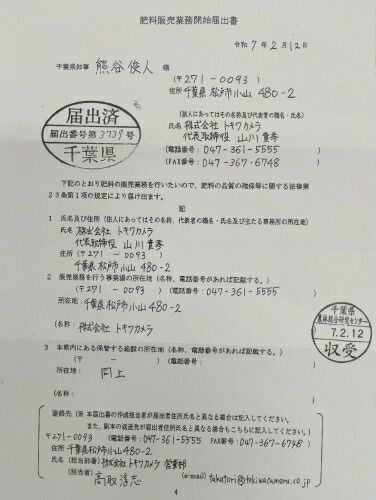 肥料販売業務開始届出書
令和7年2月12日
千葉県知事 熊谷俊人 様
(〒271-0093)
住所 千葉県松戸市小山480-2
(法人にあってはその名称及び代表者の職名・氏名)
氏名 株式会社 トキワカメラ
代表取締役 山川貴孝
(電話番号:047-361-5555)
(FAX番号:047-367-6748)
届出済
届出番号第3739号
千葉県
下記のとおり肥料の販売業務を行いたいので、肥料の品質の確保等に関する法律第
23条第1項の規定により届け出ます。
記
1 氏名及び住所(法人にあってはその名称、代表者の職名・氏名及び主たる事務所の所在地)
氏名 株式会社 トキワカメラ
代表取締役 山川貴孝
住所(〒271-0093)
千葉県松戸市小山480-2
2 販売業務を行う事業場の所在地(名称、電話番号があれば記載する。)
(〒271-0093)(電話番号:047-361-5555)
所在地:千葉県松戸市小山480-2
(名称:株式会社 トキワカメラ)
千葉県
農林総合研究センター
7.2.12
収受
3 本県内にある保管する施設の所在地(名称、電話番号があれば記載する。)
(〒 - )(電話番号: )
所在地: 同上
(名称: )
連絡先(※本届出書の作成担当者が届出者住所氏名と異なる場合は記入してください。
また、副本の返送先が届出者住所氏名と異なる場合もこちらに記入してください。)
(〒271-0093)(電話番号:047-361-5555)(FAX番号:047-367-6748)
住所 千葉県松戸市小山480-2
氏名(担当部署)株式会社トキワカメラ 営業部
(担当者)高取淳志 (e-mail) takatori@tokiwacamera.co.jp
4